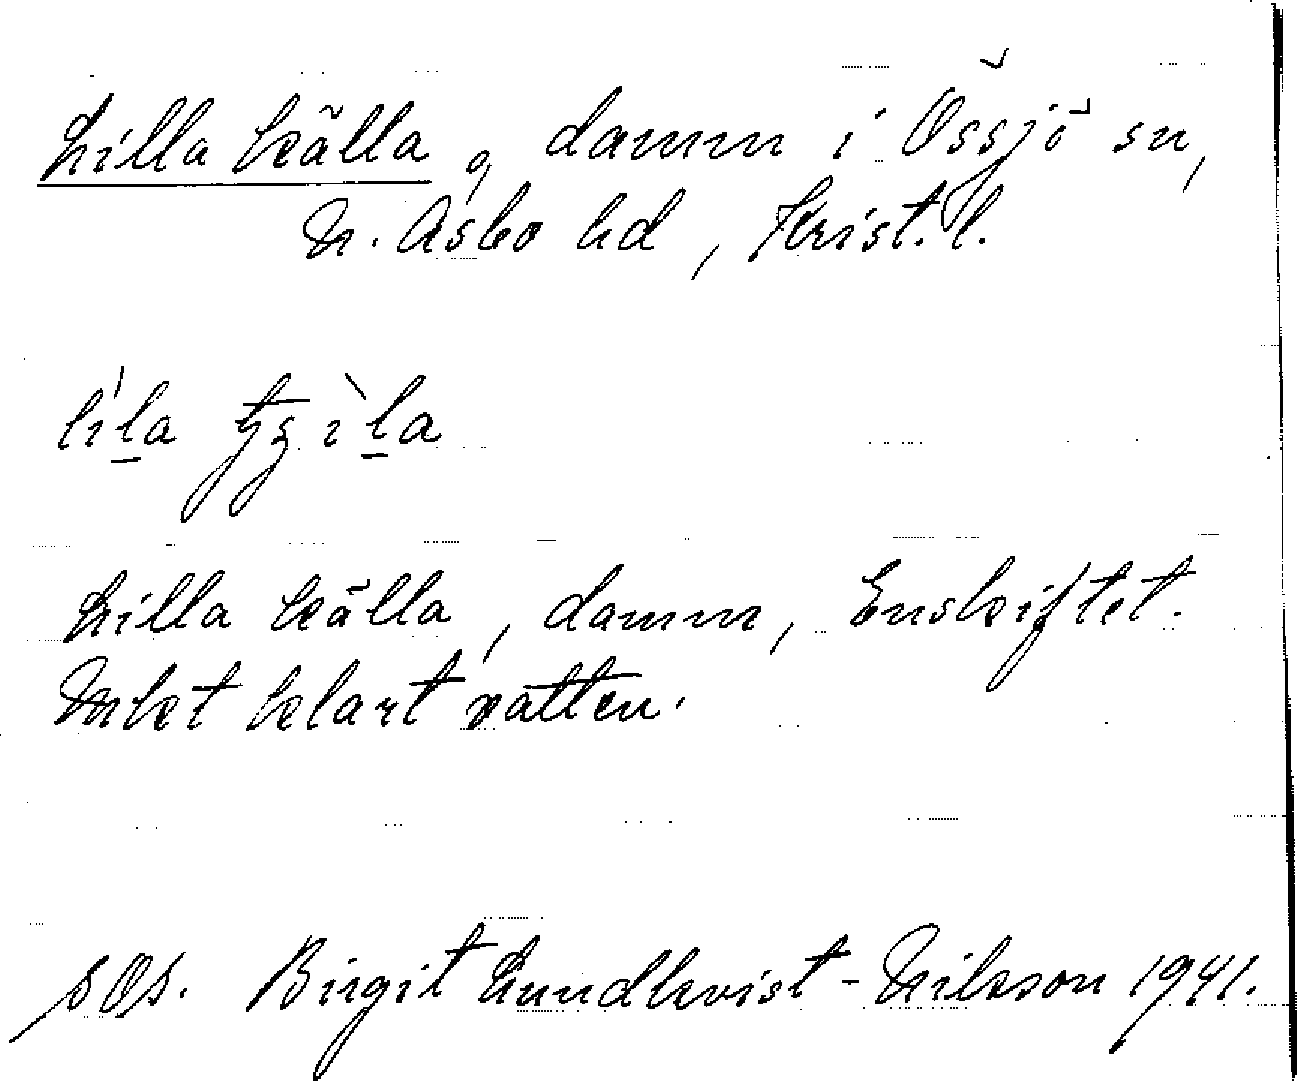 Lilla källa, damm i Össjö sn,
N. Åsbo hd, Krist. l.
Lilla källa, damm, Enskiftet.
Mket klart vatten.
sOs. Birgit Lundkvist-Nilsson 1941.